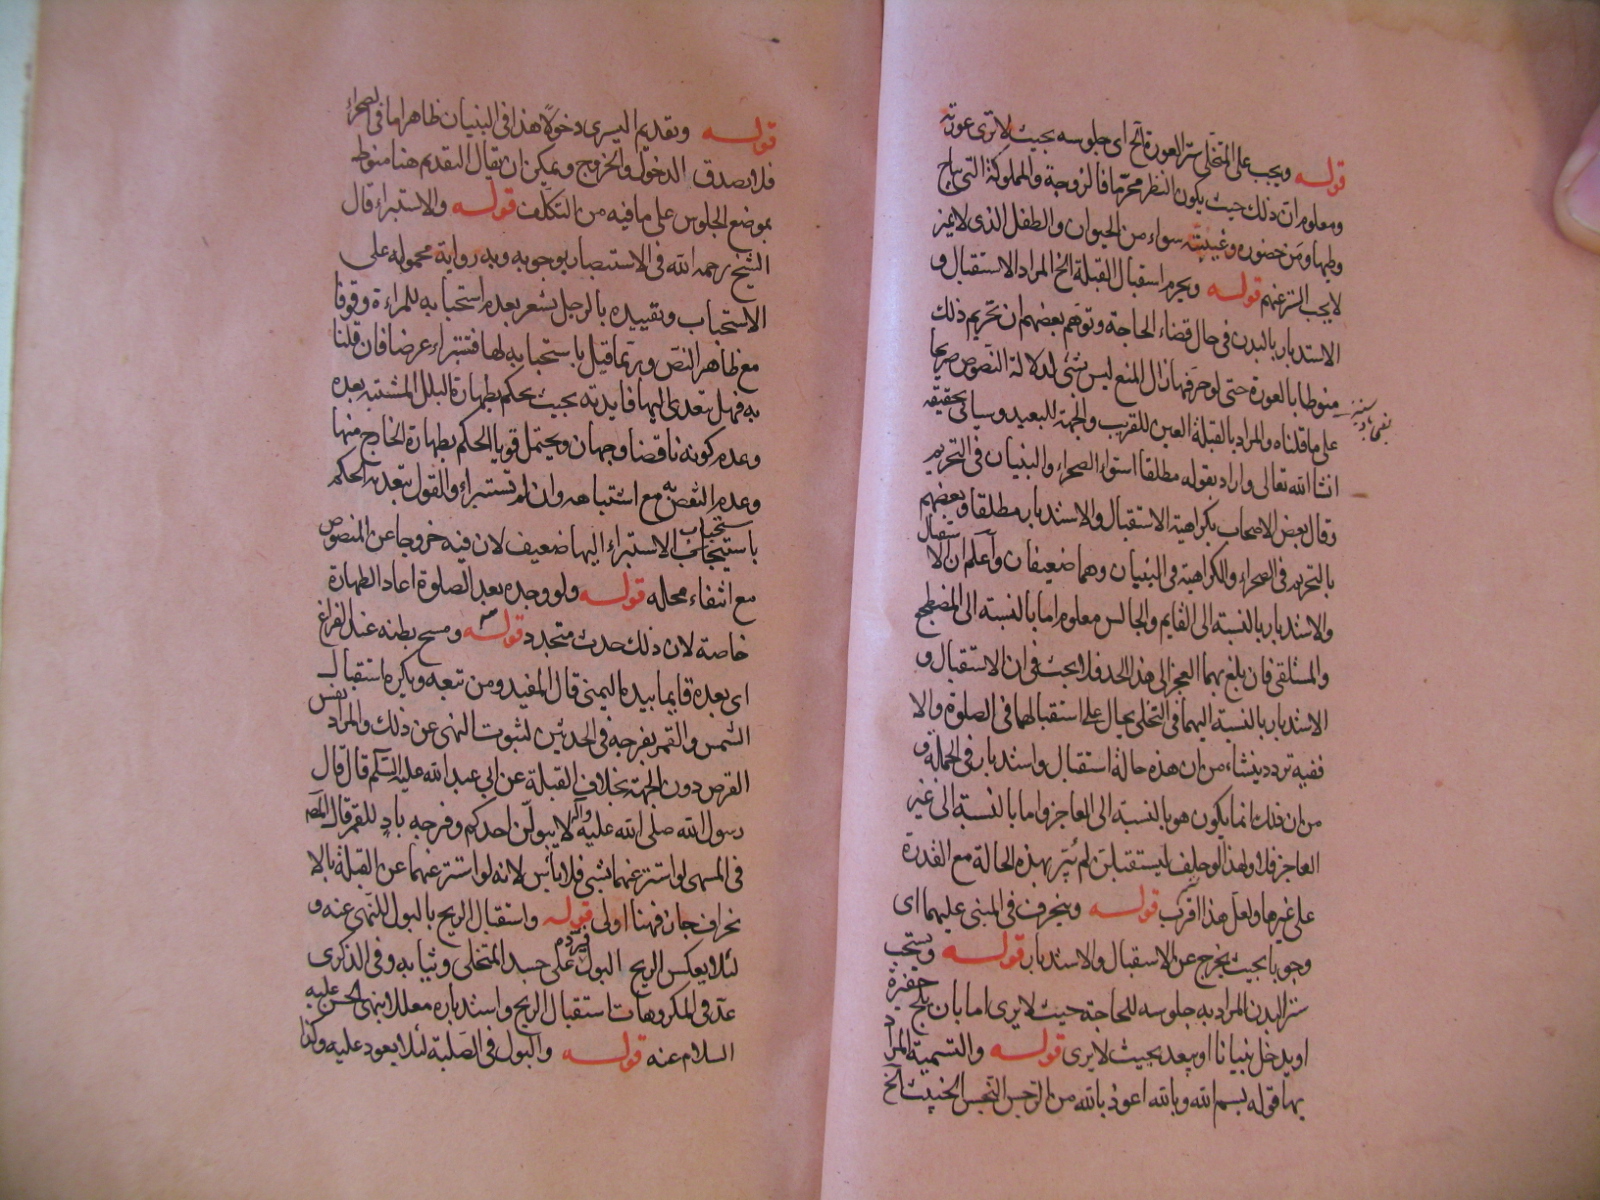 قوله ويجب على المتخلى ستر العورة الخ اى جلوسه بحيث لا ترى عورته
ومعلوم ان ذلك حيث يكون النظر محرّما فالزوجة والمملوكة التى يباح
وطيها ومن حضوره وغيبته سواء من الحيوان والطفل الذى لا يميز
لا يجب الستر عنهم قوله ويحرم استقبال القبلة الخ المراد الاستقبال و
الاستدبار بالبدن فى حال قضاء الحاجة وتوهم بعضهم ان تحريم ذلك
منوط بالعورة حتى لو حرفها زال المنع ليس بشئ لدلالة النصوص صريحا
على ما قلناه والمراد بالقبلة العين للقريب والجهة للبعيد وسياتى تحقيقه
انشا الله تعالى واراد بقوله مطلقا استواء الصحراء والبنيان فى التحريم
وقال بعض الاصحاب بكراهية الاستقبال والاستدبار مطلقا وبعضهم
بالتحريم فى الصحراء والكراهية فى البنيان وهما ضعيفان واعلم ان الاستقبال
والاستدبار بالنسبة الى القايم والجالس معلوم اما بالنسبة الى المضطجع
والمستلقى فان بلغ بهما العجز الى هذا الحد فلا بحث فى ان الاستقبال و
الاستدبار بالنسبة اليهما فى التخلى يحال على استقبالهما فى الصلوة والا
ففيه تردد ينشاء من ان هذه حالة استقبال واستدبار فى الجملة و
من ان ذلك انما يكون هو بالنسبة الى العاجز واما بالنسبة الى غير
العاجز فلا ولهذا لو حلف ليستقبلن لم يبر بهذه الحالة مع القدرة
على غيرها ولعل هذا اقرب قوله وينحرف فى المبنى عليهما اى
وجوبا بحيث يخرج عن الاستقبال والاستدبار قوله ويستحب
ستر البدن المراد به جلوسه للحاجة حيث لا يرى اما بان يلج حفيرة
او يدخل بنيانا او يبعد بحيث لا يرى قوله والتسمية المراد
بها قوله بسم الله وبالله اعوذ بالله من الرجس النجس الخبيث الخ
قوله وتقديم اليسرى دخولا هذا فى البنيان ظاهر اما فى الصحراء
فلا يصدق الدخول والخروج ويمكن ان يقال التقديم هنا منوط
بموضع الجلوس على ما فيه من التكلف قوله والاستبراء قال
الشيخ رحمه الله فى الاستبصار بوجوبه وبه رواية محمولة على
الاستحباب وتقييده بالرجل يشعر بعدم استحبابه للمراءة وقوفا
مع ظاهر النص وربما قيل باستحبابه لها فتستبراء عرضا فان قلنا
به فهل تتعدى اليها فايدته بحيث يحكم بطهارة البلل المشتبه بعده
وعدم كونه ناقضا وجهان ويحتمل قويا الحكم بطهارة الخارج منها
وعدم النقض به مع اشتباهه وان لم تستبراء والقول بتعدية الحكم
باستحباب الاستبراء اليها ضعيف لان فيه خروجا عن المنصوص
مع انتفاء محله قوله ولو وجده بعد الصلوة اعاد الطهارة
خاصة لان ذلك حدث متجدد قوله ومسح بطنه عند الفراغ
اى بعده قايما بيده اليمنى قال المفيد ومن تبعه ويكره استقبال
الشمس والقمر بفرجه فى الحدثين لثبوت النهى عن ذلك والمراد نفس
القرص دون الجهة بخلاف القبلة عن ابي عبد الله عليه السلم قال قال
رسول الله صلى الله عليه وآله لا يبولن احدكم وفرجه باد للقمر قال المصنف
فى المنتهى لو استتر عنهما بشئ فلا باس لانه لو استتر عنهما عن القبلة بالا
نحراف جاز فهنا اولى قوله واستقبال الريح بالبول للنهى عنه و
لئلا يعكس الريح البول فيرده على جسد المتخلى وثيابه وفى الذكرى
عد فى المكروهات استقبال الريح واستدباره معللا بنهى الحسن عليه
السلام عنه قوله والبول فى الصلبة لئلا يعود عليه وكذا